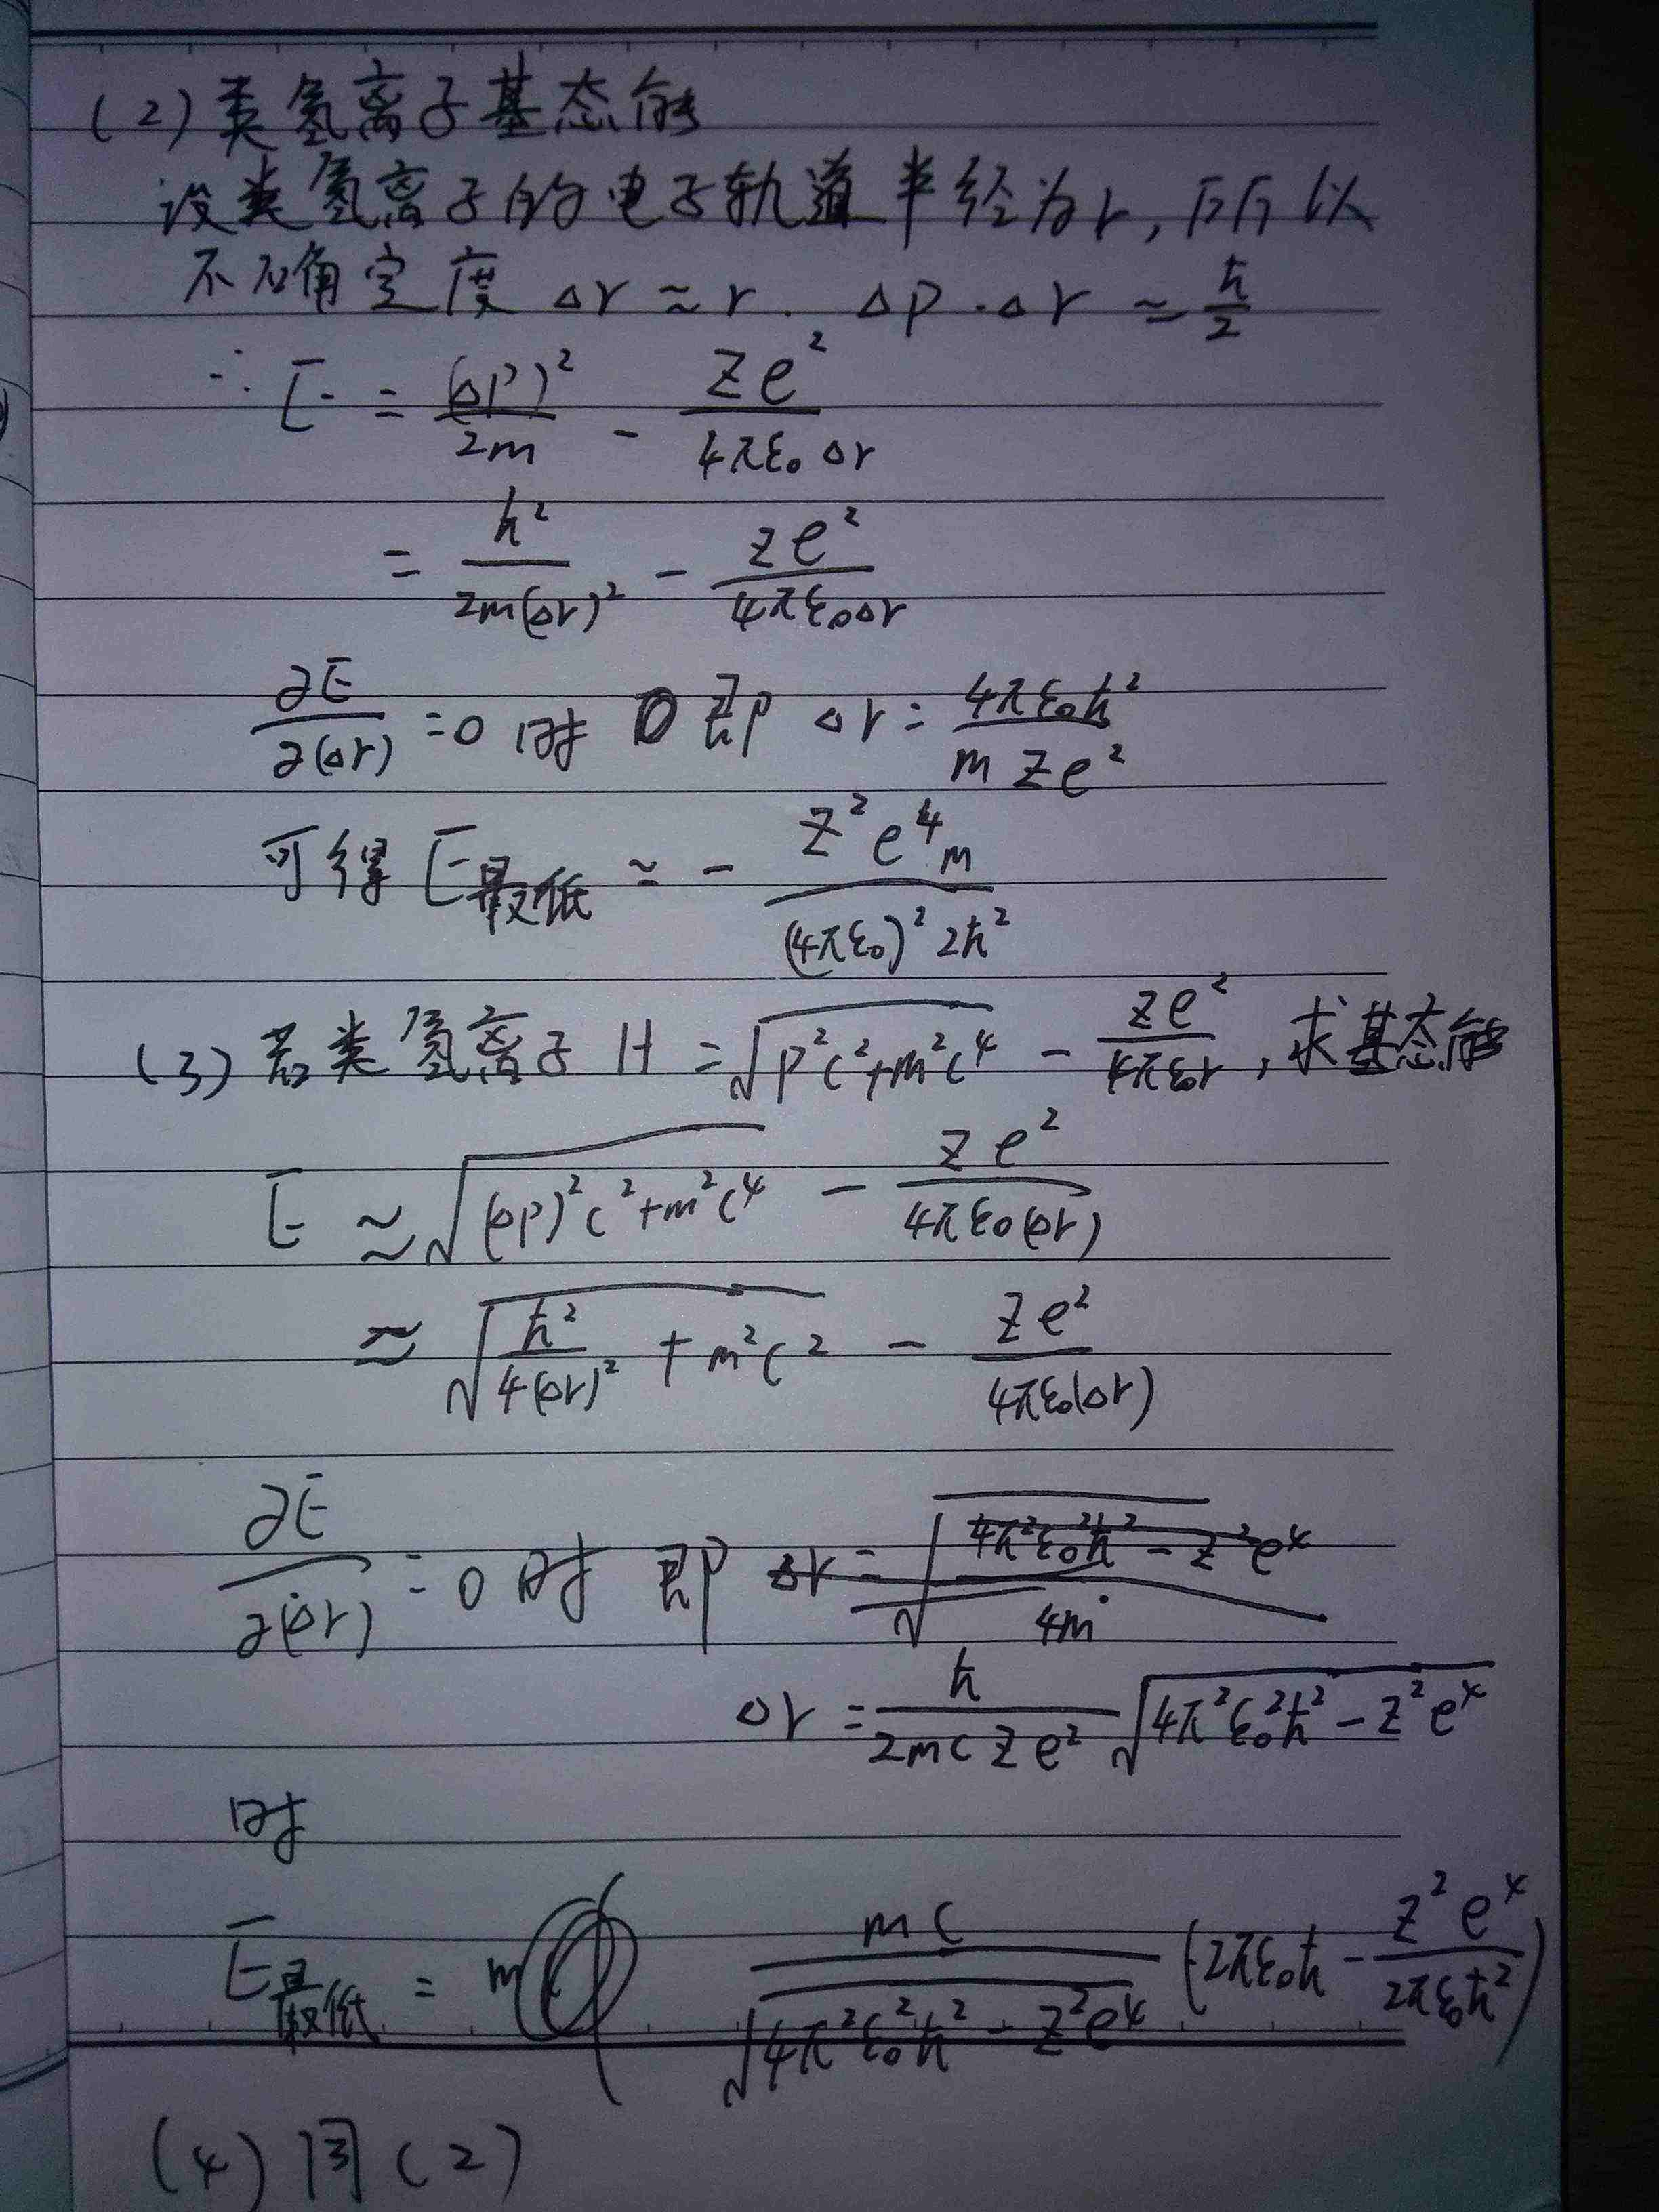 (2) 类氢离子基态能
设类氢离子的电子轨道半经为r, 所以
不确定度 Δr ≈ r. Δp·Δr ≈ ħ/2
∴ E = (Δp)²/2m - Ze²/4πε₀Δr
= ħ²/2m(Δr)² - Ze²/4πε₀Δr
∂E/∂(Δr) = 0 时 即 Δr = 4πε₀ħ²/mZe²
可得 E最低 ≈ - Z²e⁴m/(4πε₀)²2ħ²
(3) 若类氢离子 H = √(p²c²+m²c⁴) - Ze²/4πε₀r, 求基态能
E ≈ √((Δp)²c²+m²c⁴) - Ze²/4πε₀(Δr)
≈ √(ħ²/4(Δr)² + m²c²) - Ze²/4πε₀(Δr)
∂E/∂(Δr) = 0 时 即 Δr = √((4π²ε₀²ħ² - Z²e⁴)/4m)
Δr = ħ/2mcZe² √(4π²ε₀²ħ² - Z²e⁴)
时
E最低 = m mc/√(4π²ε₀²ħ² - Z²e⁴) (2πε₀ħ - Z²e⁴/2πε₀ħ²)
(4) 同(2)